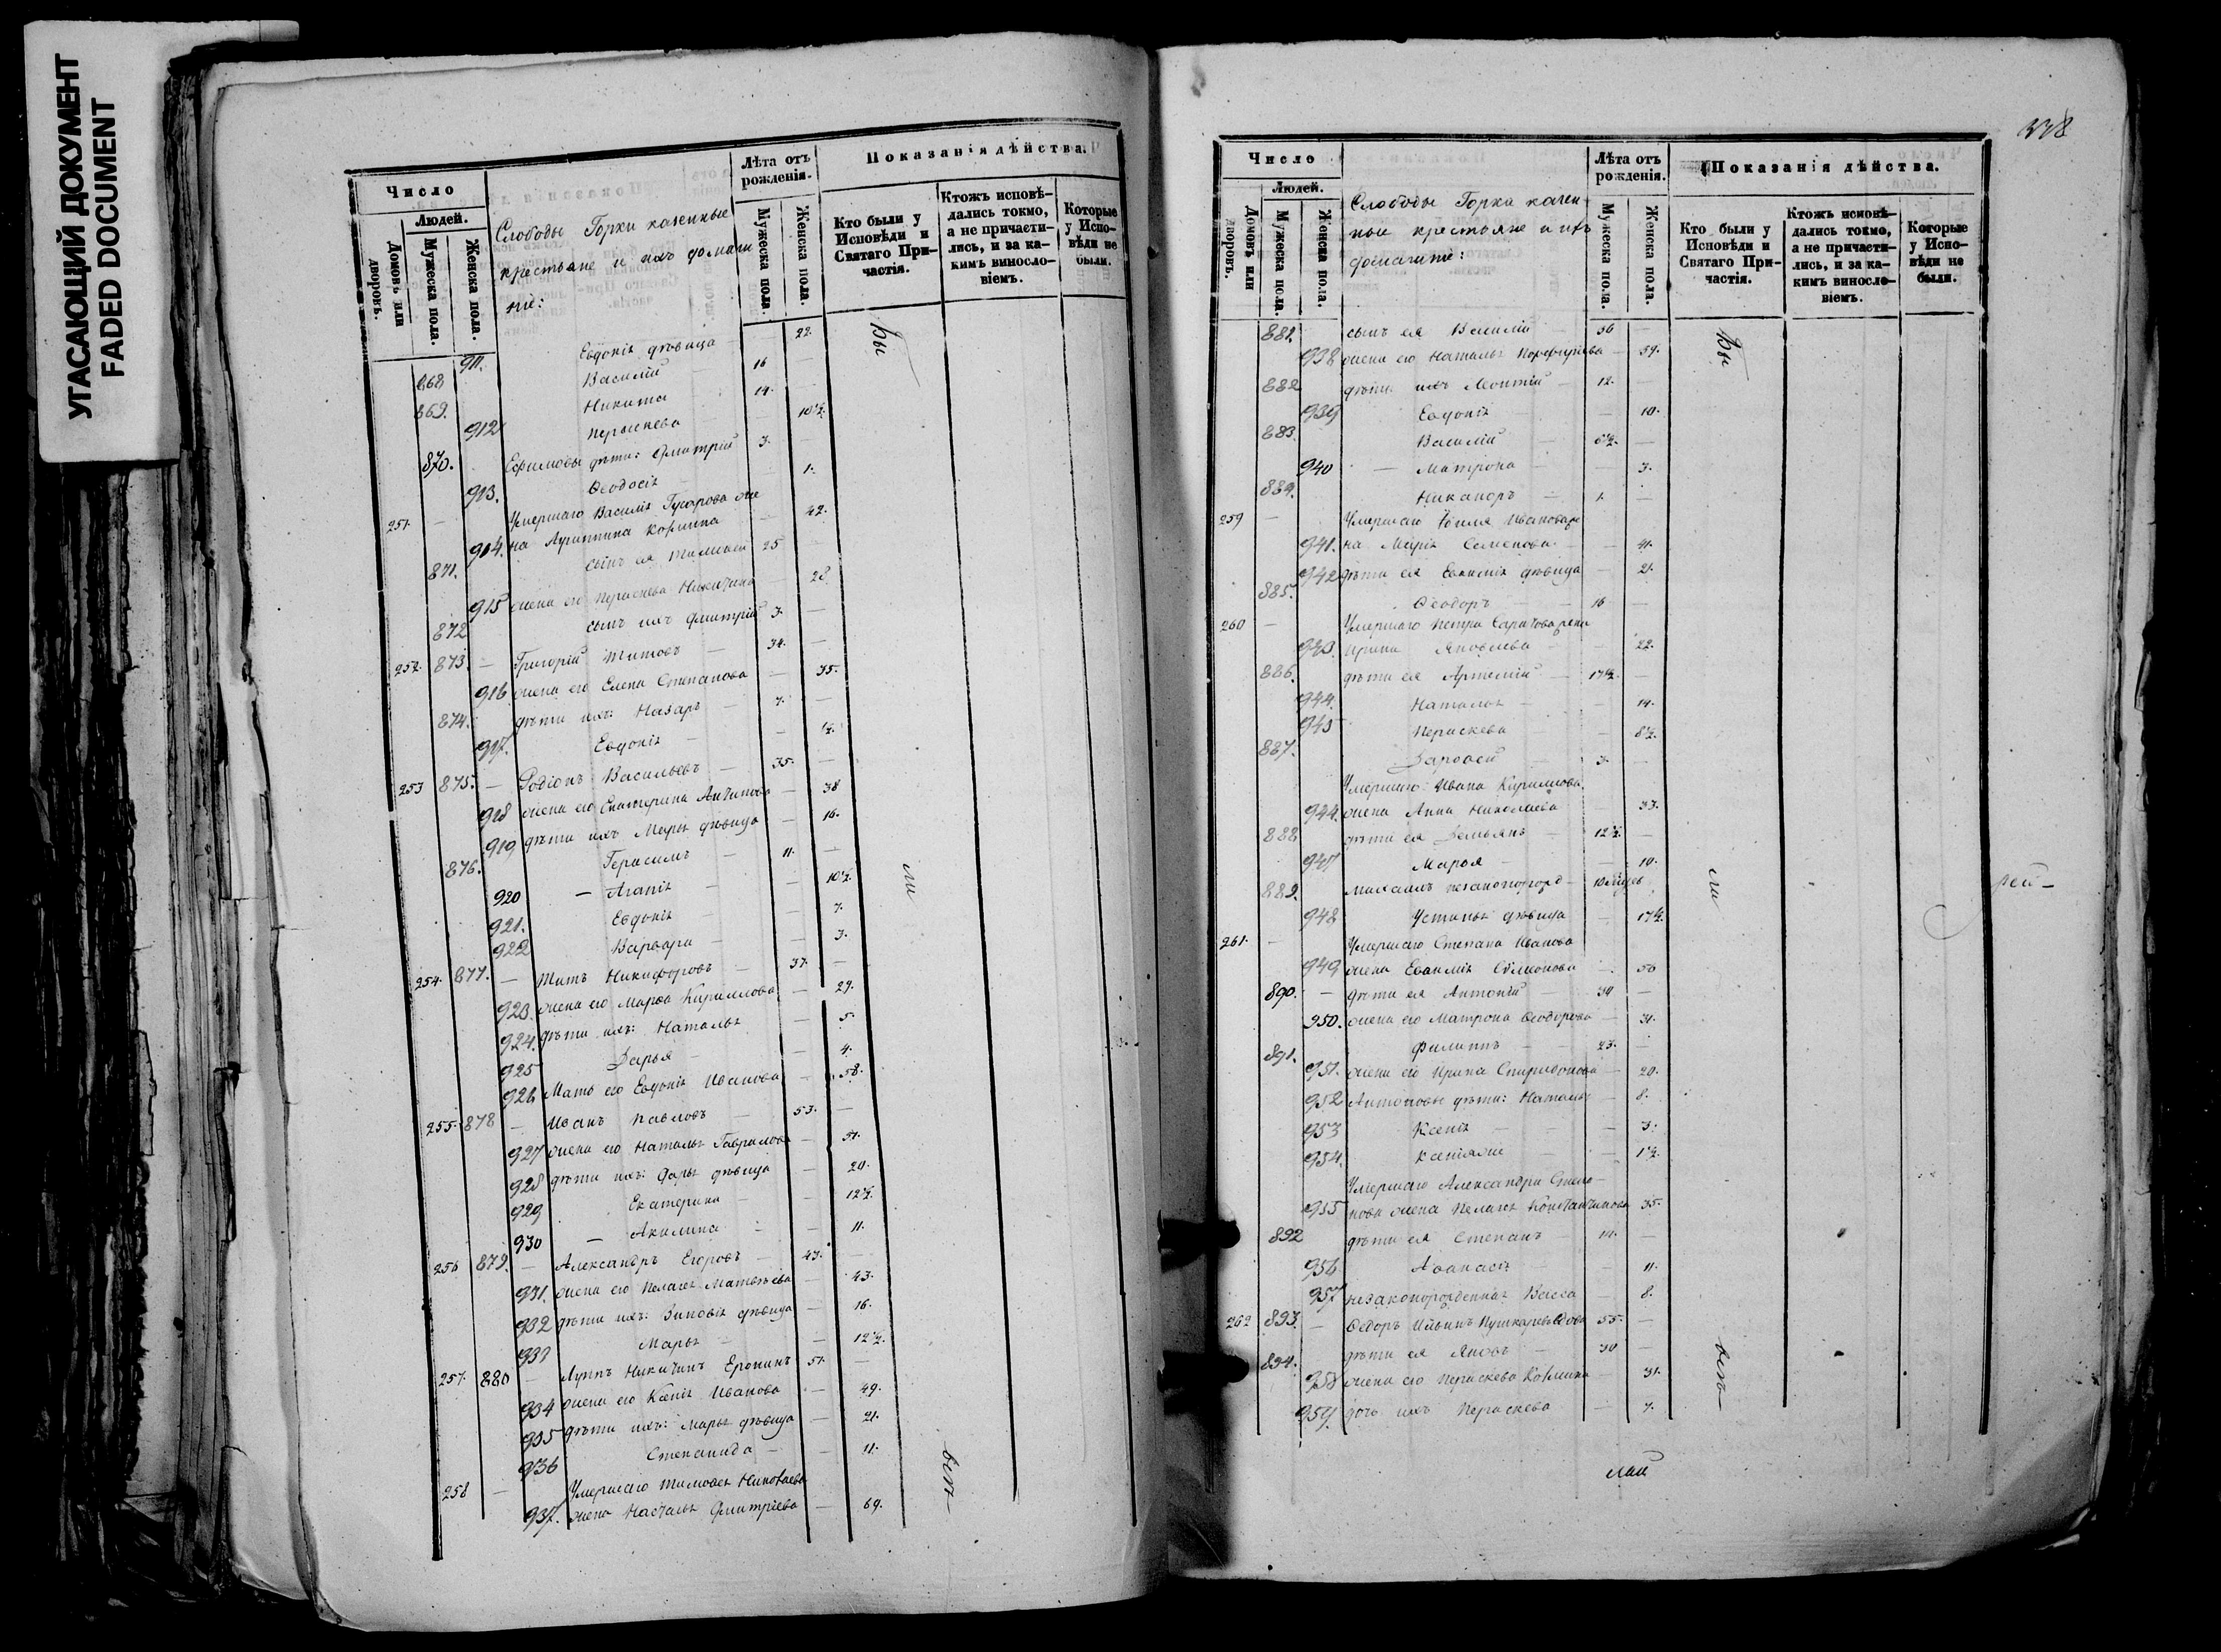 УГАСАЮЩИЙ ДОКУМЕНТ
FADED DOCUMENT
Число
Людей.
Домовъ или дворовъ.
Мужеска пола.
Женска пола.
Слободы Горки казенные
крестьяне и ихъ домашн
ніе:
Лѣта отъ рожденія.
Мужеска пола.
Женска пола.
Показанія дѣйства.
Кто были у Исповѣди и Святаго Причастія.
Ктожъ исповѣдались токмо, а не причастились, и за какимъ винословіемъ.
Которые у Исповѣди не были.
911. Евдокія дѣвица — 22.
868 Василій — 16 —
869. Никита — 14. —
912 Параскева — 10½.
870. Ефимовы дѣти: Дмитрій 3. —
913. Ѳеодосія — 1.
251. — Умершаго Василія Гусарова же
914. на Агриппина Козмина — 42.
871. сынъ ея Тимоѳей 25 —
915 жена его Параскева Никитина 28.
872 сынъ ихъ Дмитрій 3. —
252. 873. — Григорій Титовъ — 34. —
916 жена его Елена Степанова — 35.
874. дѣти ихъ: Назаръ — 7. —
917. Евдокія — ½.
253 875. — Родіонъ Васильевъ — 35. —
918 жена его Екатерина Антипова — 38
919 дѣти ихъ Марья дѣвица — 16.
876. Герасимъ — 11. —
920 — Агапія — — 10½.
921. Евдокія — 7.
922 Варвара — — 3.
254. 877. — Титъ Никифоровъ — 37. —
923. жена его Марѳа Кириллова — 29.
924. дѣти ихъ: Наталья — 5.
925 Дарья — — 4.
926 Мать его Евдокія Иванова — 58.
255. 878 — Иванъ Павловъ — 53. —
927 жена его Наталья Гаврилова — 51.
928 дѣти ихъ: Дарья дѣвица — 20.
929 Екатерина — — 12½.
930 — Акилина — 11.
256 879. — Александръ Егоровъ — 43. —
931. жена его Пелагея Матвѣева — 43.
932 дѣти ихъ: Зиновія дѣвица — 16.
933 Марья — — 12½.
257. 880 — Луппъ Никитинъ Еропинъ 51. —
934 жена его Ксенія Иванова — 49.
935 дѣти ихъ: Марья дѣвица — 21.
936 Степанида — — 11.
258 — Умершаго Тимоѳея Николаева
937. жена Наталья Дмитріева — 69.
Бы
ли
всѣ —
338
Число
Людей.
Домовъ или дворовъ.
Мужеска пола.
Женска пола.
Слободы Горка казен
ные крестьяне и ихъ
домашніе:
Лѣта отъ рожденія.
Мужеска пола.
Женска пола.
Показанія дѣйства.
Кто были у Исповѣди и Святаго Причастія.
Ктожъ исповѣдались токмо, а не причастились, и за какимъ винословіемъ.
Которые у Исповѣди не были.
881. сынъ ея Василій — 36 —
938 жена его Наталья Порфирьева — 39.
882 дѣти ихъ Леонтій — 12. —
939 Евдокія — 10.
883. Василій — 6½. —
940 — Матрона — — 3.
884. Никаноръ — 1. —
259 — Умершаго Іова Иванова же
941. на Марія Семенова — — 41.
942 дѣти ея Евфимія дѣвица — 21.
885. Ѳеодоръ — 16 —
260 — Умершаго Петра жена
943. Ирина Яковлева — — 22.
886. дѣти ея Артемій — 17½. —
944. Наталья — — 14.
945 Параскева — — 8½.
887. 3. —
Умершаго Ивана Кириллова
944. жена Анна Николаева — 33.
888 дѣти ея Демьянъ — 12½. —
947 Марья — — 10.
889. Михаилъ незаконорожд —
948 Устинья дѣвица — 17½.
261. — Умершаго Степана Иванова
949 жена Евфимія Симеонова — 56
890. — дѣти ея Антоній — 34 —
950. жена его Матрона Ѳеодорова — 31.
891. Филиппъ — 23. —
951. жена его Ирина Спиридонова — 20.
952 Антоновы дѣти: Наталья — 8.
953 Ксенія — — 3.
954. — 1½.
Умершаго Александра Степа-
955 нова жена Пелагея Константинова 35.
892 дѣти ея Степанъ — 14. —
956 Аѳанасія — — 11.
957 незаконорожденная Васса — 8.
262 893. — Ѳедоръ Ильинъ Пушкаревъ вдовъ 55. —
894. дѣти ея Яковъ — 30 —
958 жена его Параскева Козмина — 31.
959. дочь ихъ Параскева — 7.
Бы
ли
всѣ —
рей —
лай